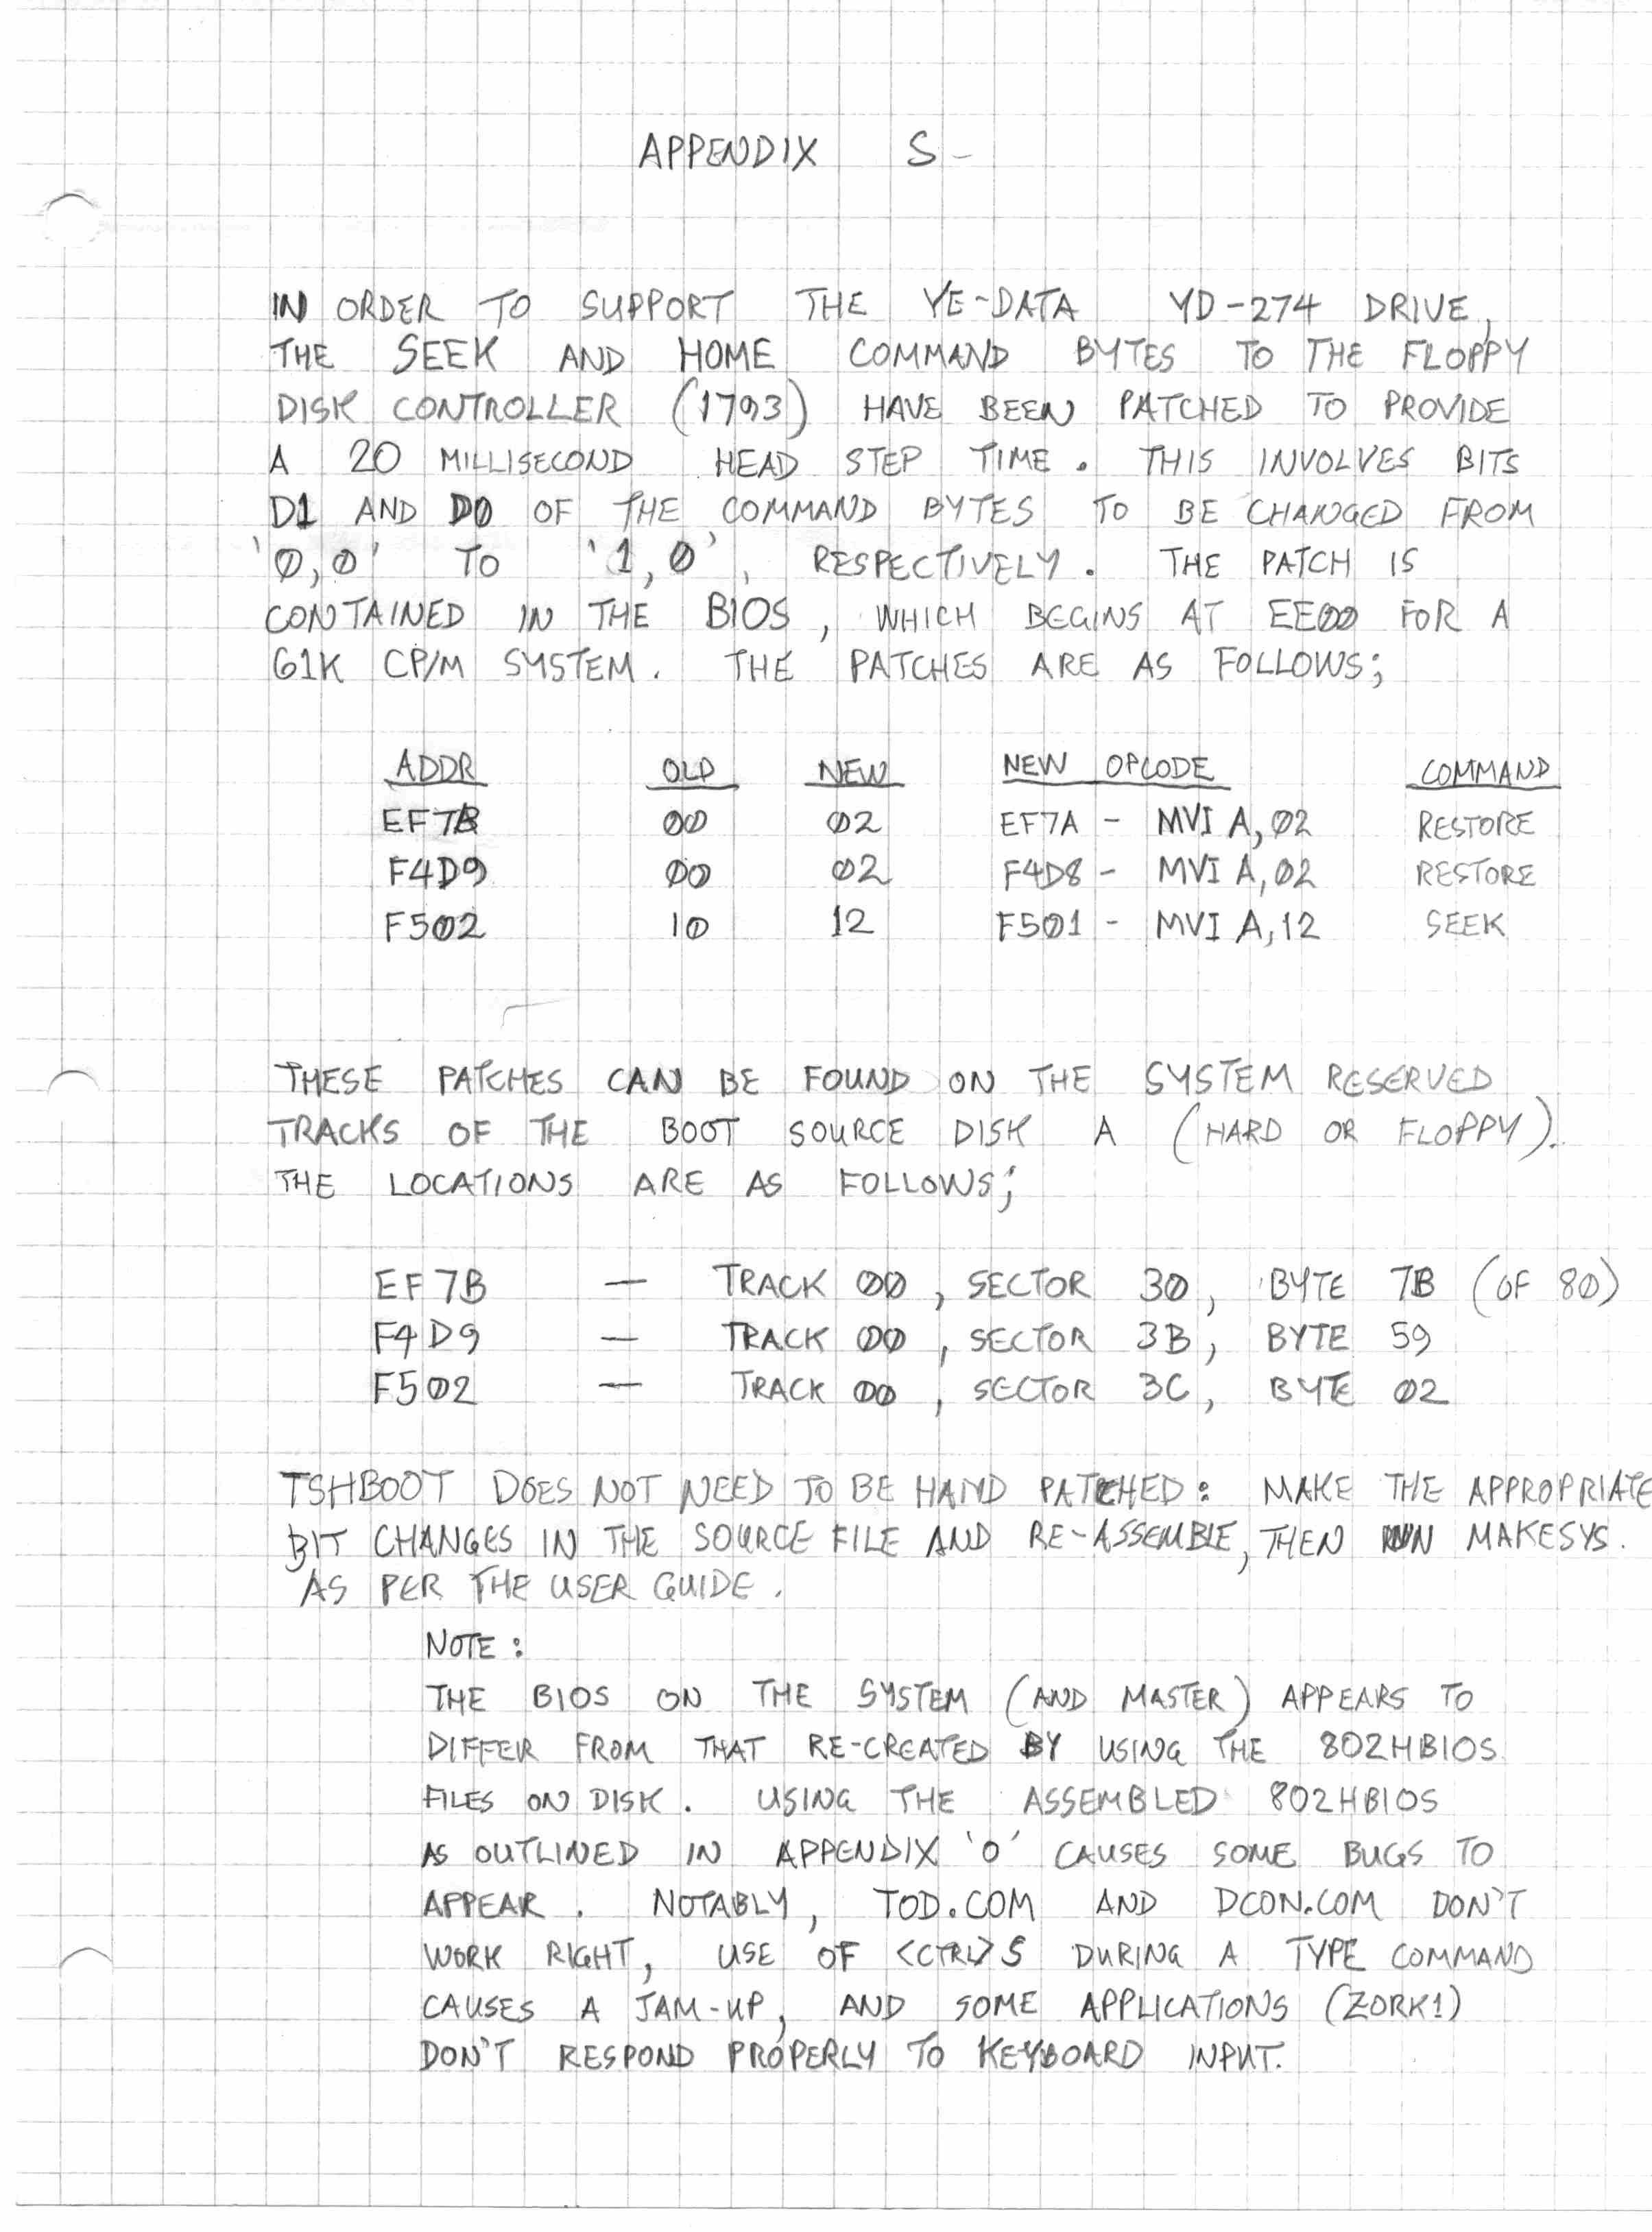 APPENDIX S-
IN ORDER TO SUPPORT THE YE-DATA YD-274 DRIVE,
THE SEEK AND HOME COMMAND BYTES TO THE FLOPPY
DISK CONTROLLER (1793) HAVE BEEN PATCHED TO PROVIDE
A 20 MILLISECOND HEAD STEP TIME. THIS INVOLVES BITS
D1 AND D0 OF THE COMMAND BYTES TO BE CHANGED FROM
'0,0' TO '1,0', RESPECTIVELY. THE PATCH IS
CONTAINED IN THE BIOS, WHICH BEGINS AT EE00 FOR A
61K CP/M SYSTEM. THE PATCHES ARE AS FOLLOWS;
ADDR OLD NEW NEW OPCODE COMMAND
EF7B 00 02 EF7A - MVI A,02 RESTORE
F4D9 00 02 F4D8 - MVI A,02 RESTORE
F502 10 12 F501 - MVI A,12 SEEK
THESE PATCHES CAN BE FOUND ON THE SYSTEM RESERVED
TRACKS OF THE BOOT SOURCE DISK A (HARD OR FLOPPY).
THE LOCATIONS ARE AS FOLLOWS;
EF7B — TRACK 00, SECTOR 30, BYTE 7B (OF 80)
F4D9 — TRACK 00, SECTOR 3B, BYTE 59
F502 — TRACK 00, SECTOR 3C, BYTE 02
TSHBOOT DOES NOT NEED TO BE HAND PATCHED: MAKE THE APPROPRIATE
BIT CHANGES IN THE SOURCE FILE AND RE-ASSEMBLE, THEN RUN MAKESYS.
AS PER THE USER GUIDE.
NOTE:
THE BIOS ON THE SYSTEM (AND MASTER) APPEARS TO
DIFFER FROM THAT RE-CREATED BY USING THE 802HBIOS
FILES ON DISK. USING THE ASSEMBLED 802HBIOS
AS OUTLINED IN APPENDIX 'O' CAUSES SOME BUGS TO
APPEAR. NOTABLY, TOD.COM AND DCON.COM DON'T
WORK RIGHT, USE OF <CTRL>S DURING A TYPE COMMAND
CAUSES A JAM-UP, AND SOME APPLICATIONS (ZORK1)
DON'T RESPOND PROPERLY TO KEYBOARD INPUT.